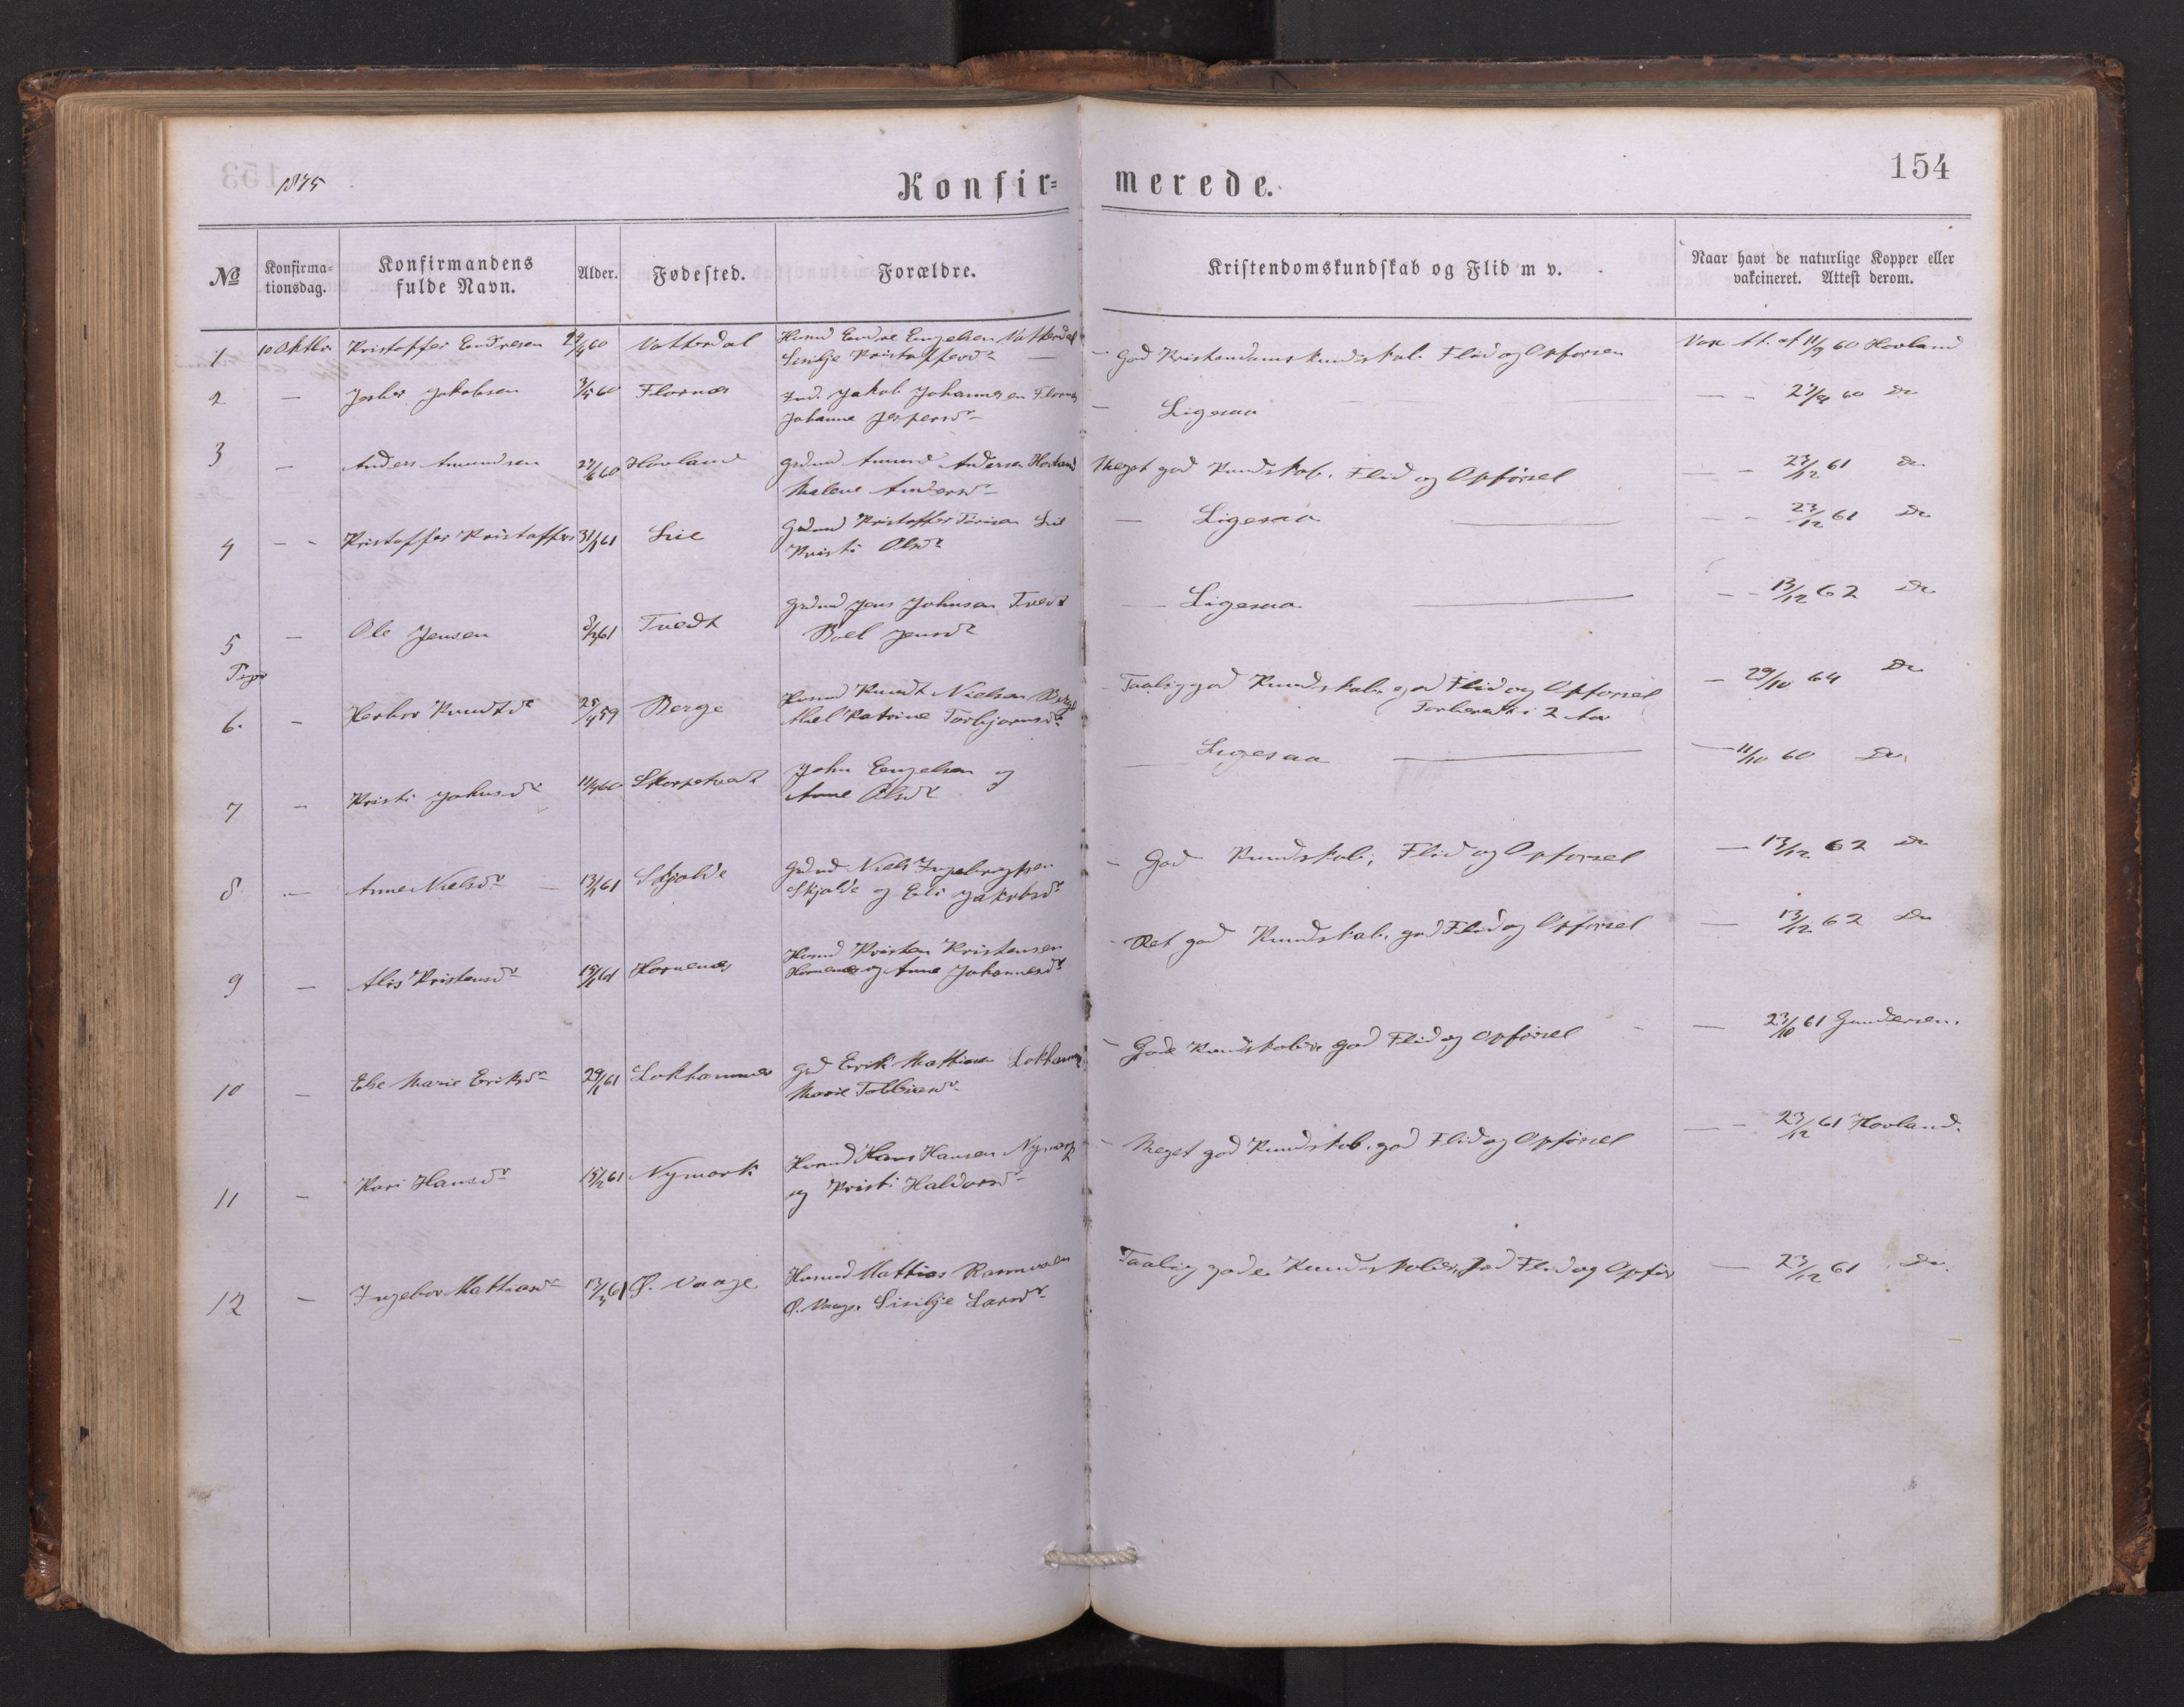 1875
Konfir=
merede.
154
№
Konfirma=
tionsdag.
Konfirmandens
fulde Navn.
Alder.
Fødested.
Forældre.
Kristendomskundskab og Flid m v.
Naar havt de naturlige Kopper eller
vakcineret. Attest derom.
1 10 Oktbr Kristoffer Endresen 60 Vatterdal Husmd Endre Engelsen Vatterdal
Sisilje Kristoffersd — God Kristendomskundskab Flid og Opførsen Vax. 11/9 60 Hovland
2 — Jakobsen 3/5 60 Flornæs Jakob Johannesen Flornæs
Johanne Jespersd — Ligesaa — — 60 Do
3 — Anders Amundsen 27/6 60 Hovland Grdmd Amund Andersen Hovland
Malene Andersd Meget god Kundskab. Flid og Opførsel — — 23/12 61 Do
4 — — Kristoffer Kristoffers 61 Lie Grdmd Kristoffer Lie
Kristi Olsd — Ligesaa — — — 23/12 61 Do
5 — Ole Jensen 61 Tvedt Grdmd Jens Johnsen Tvedt
Boel Jensd — Ligesaa — — — 13/12 62 Do
Piger
6. — Herbor Knudtsd 25/4 59 Berge Husmd Knudt Nielsen Berge
Katrine Torbjørnsd — Taalig god Kundskab, god Flid og Opførsel
Forberedt i 2 Aar — 29/10 64 Do
7 — Kristi Johnsd 60 Skorpetvedt John Engelsen og
Anne Olsd — Ligesaa — — 11/10 60 Do.
8 — Anne Nielsd — 61 Skjolde Grdmd Niels Ingebrigtsen
Skjolde og Eli Jakobsd — God Kundskab, Flid og Opførsel — 13/12 62 Do
9 — Kristensd 61 Hornenes Husmd Kristen Kristensen
Hornenes og Anne Johannesd — Ret god Kundskab, god Flid og Opførsel — 13/12 62 Do
10 — Else Marie Eriksd 29/1 61 Lokhammer Grd Erik Mathiasen Lokhammer
Marie — Gode Kundskaber god Flid og Opførsel — — 23/10 61 Gundersen.
11 — Kari Hansd 61 Nymark Husmd Hans Hansen Nymark
og Kristi Haldorsd — Meget god Kundskab. god Flid og Opførsel — — 23/12 61 Hovland.
12 — Ingebor Mathiasd 61 Ø. Vaage Husmd Mathias Rasmusen
Ø. Vaage. Sisilje Larsd Taalig gode Kundskaber, god Flid og Opfør — 23/12 61 Do.